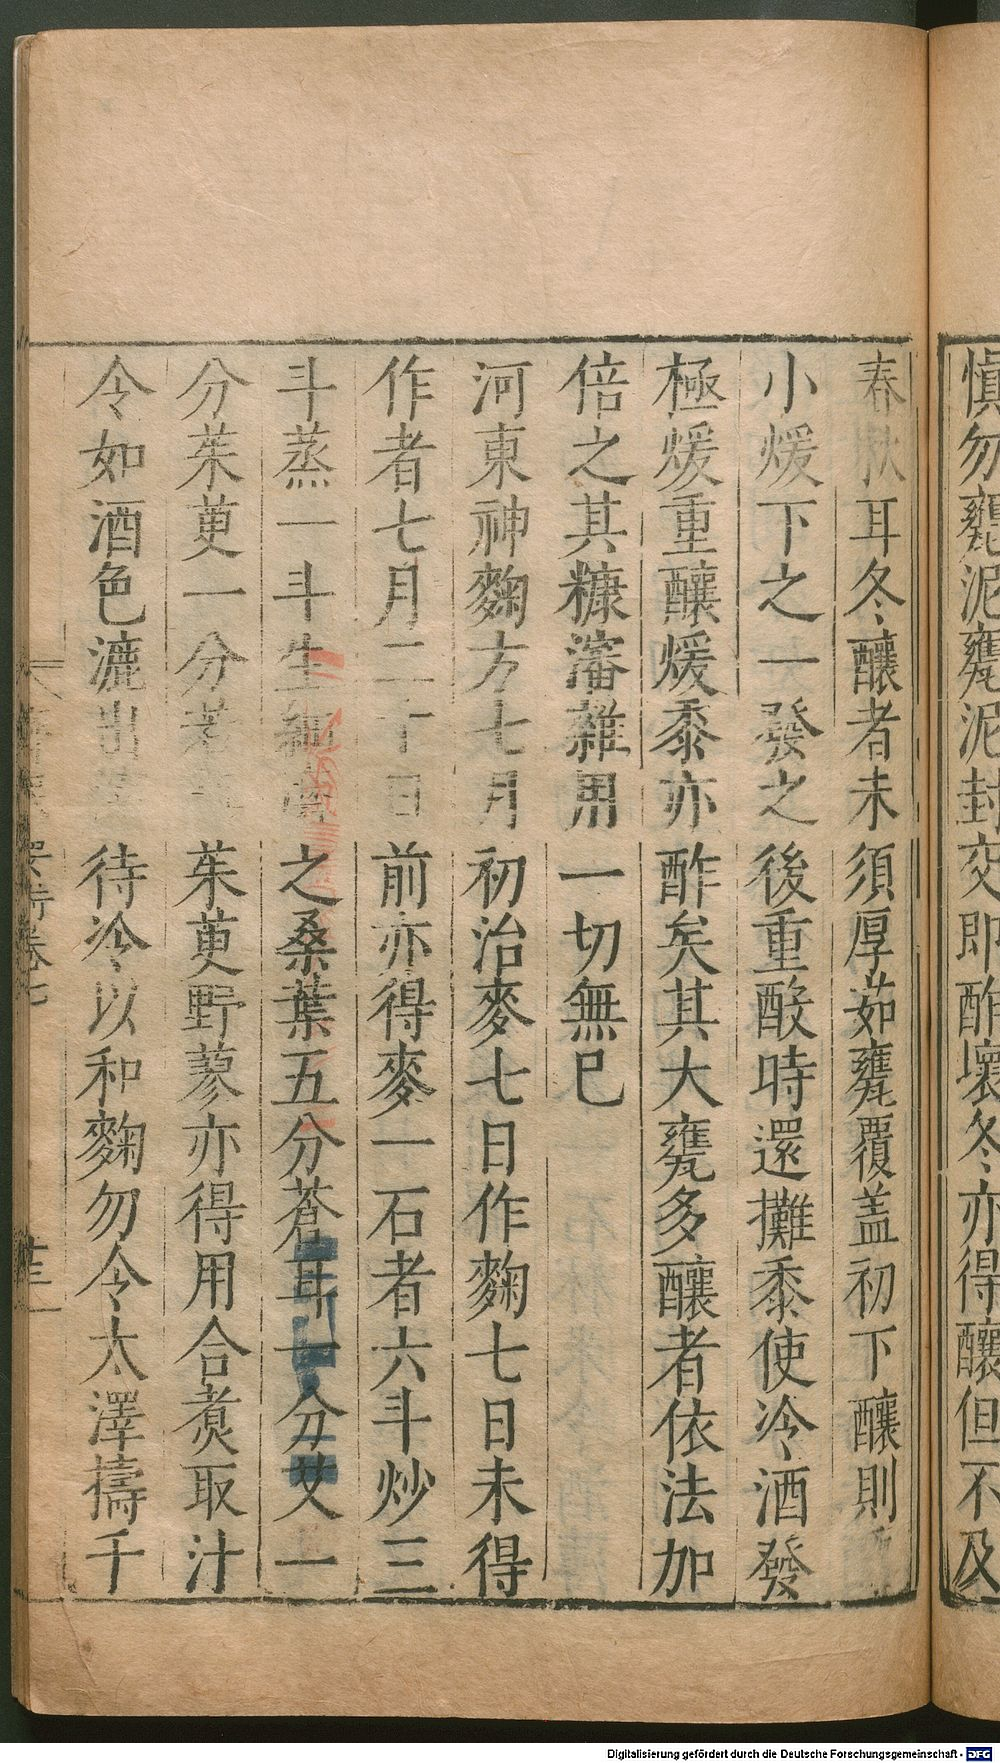 慎勿甕泥甕泥封交即酢壞冬亦得釀但不及
春秋耳冬釀者未須厚茹甕覆盖初下釀則
小煖下之一發之後重酘時還攤黍使冷酒發
極煖重釀煖黍亦酢矣其大甕多釀者依法加
倍之其糠瀋雜用一切無巳
河東神麴方七月初治麥七日作麴七日未得
作者七月二十日前亦得麥一石者六斗炒三
斗蒸一斗生細磨之桑葉五分蒼耳一分艾一
分茱萸一分若無茱萸野蓼亦得用合煑取汁
令如酒色漉出待冷以和麴勿令太澤擣千
卷七
Digitalisierung gefördert durch die Deutsche Forschungsgemeinschaft - DFG